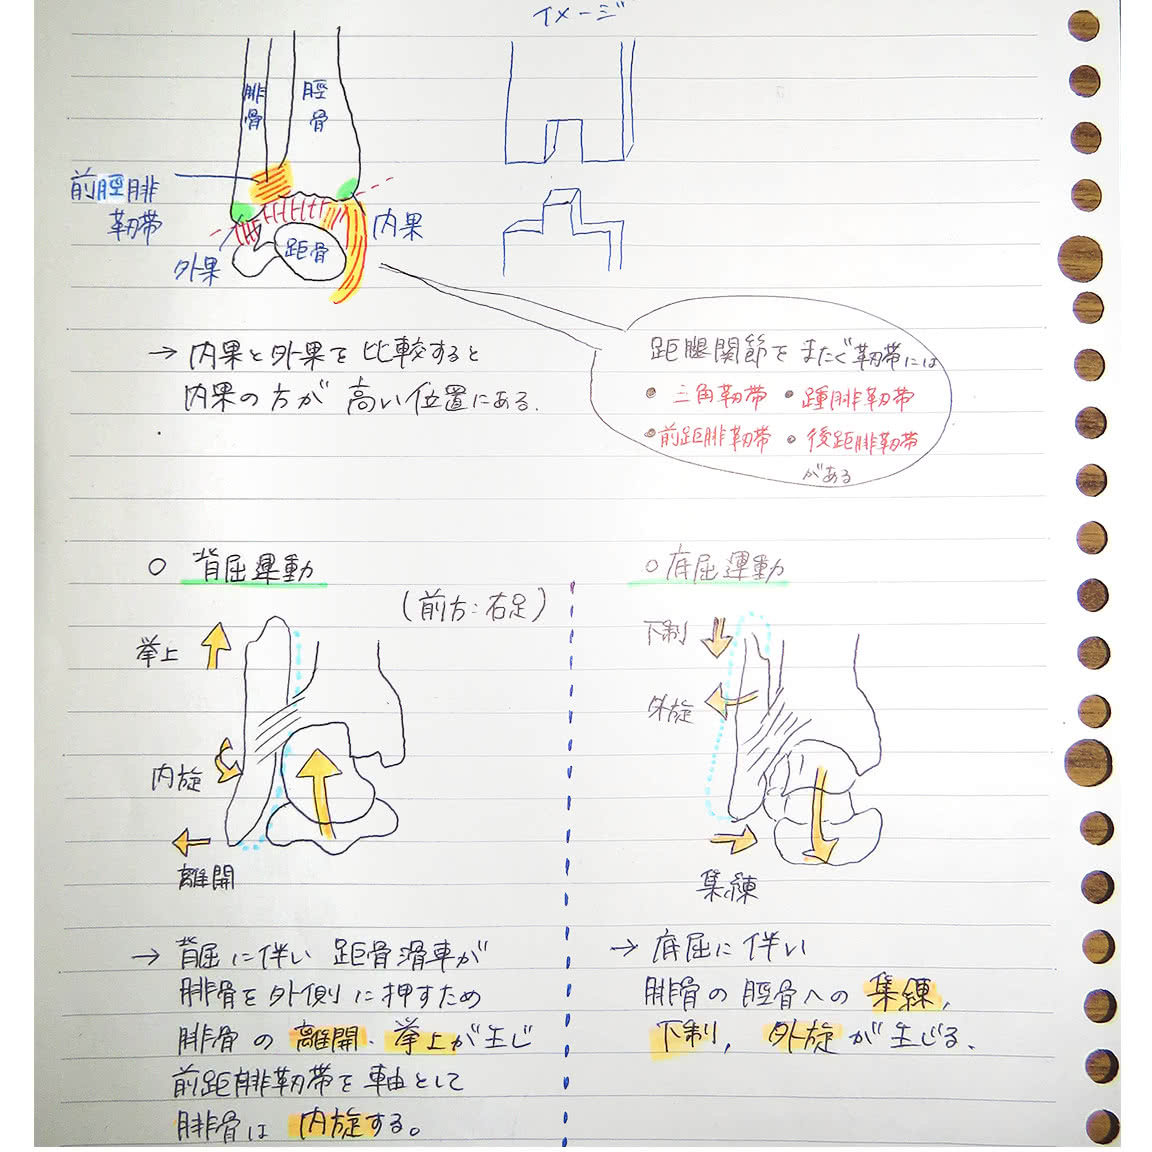 イメージ
腓骨
脛骨
前脛腓
靭帯
外果
距骨
内果
→ 内果と外果を比較すると
内果の方が高い位置にある.
距腿関節をまたぐ靭帯には
• 三角靭帯 • 踵腓靭帯
• 前距腓靭帯 • 後距腓靭帯
がある
○ 背屈運動
(前方:右足)
挙上
内旋
離開
→ 背屈に伴い 距骨滑車が
腓骨を外側に押すため
腓骨の離開、挙上が生じ
前距腓靭帯を軸として
腓骨は内旋する。
○ 底屈運動
下制
外旋
集練
→ 底屈に伴い
腓骨の脛骨への集練,
下制, 外旋が生じる.